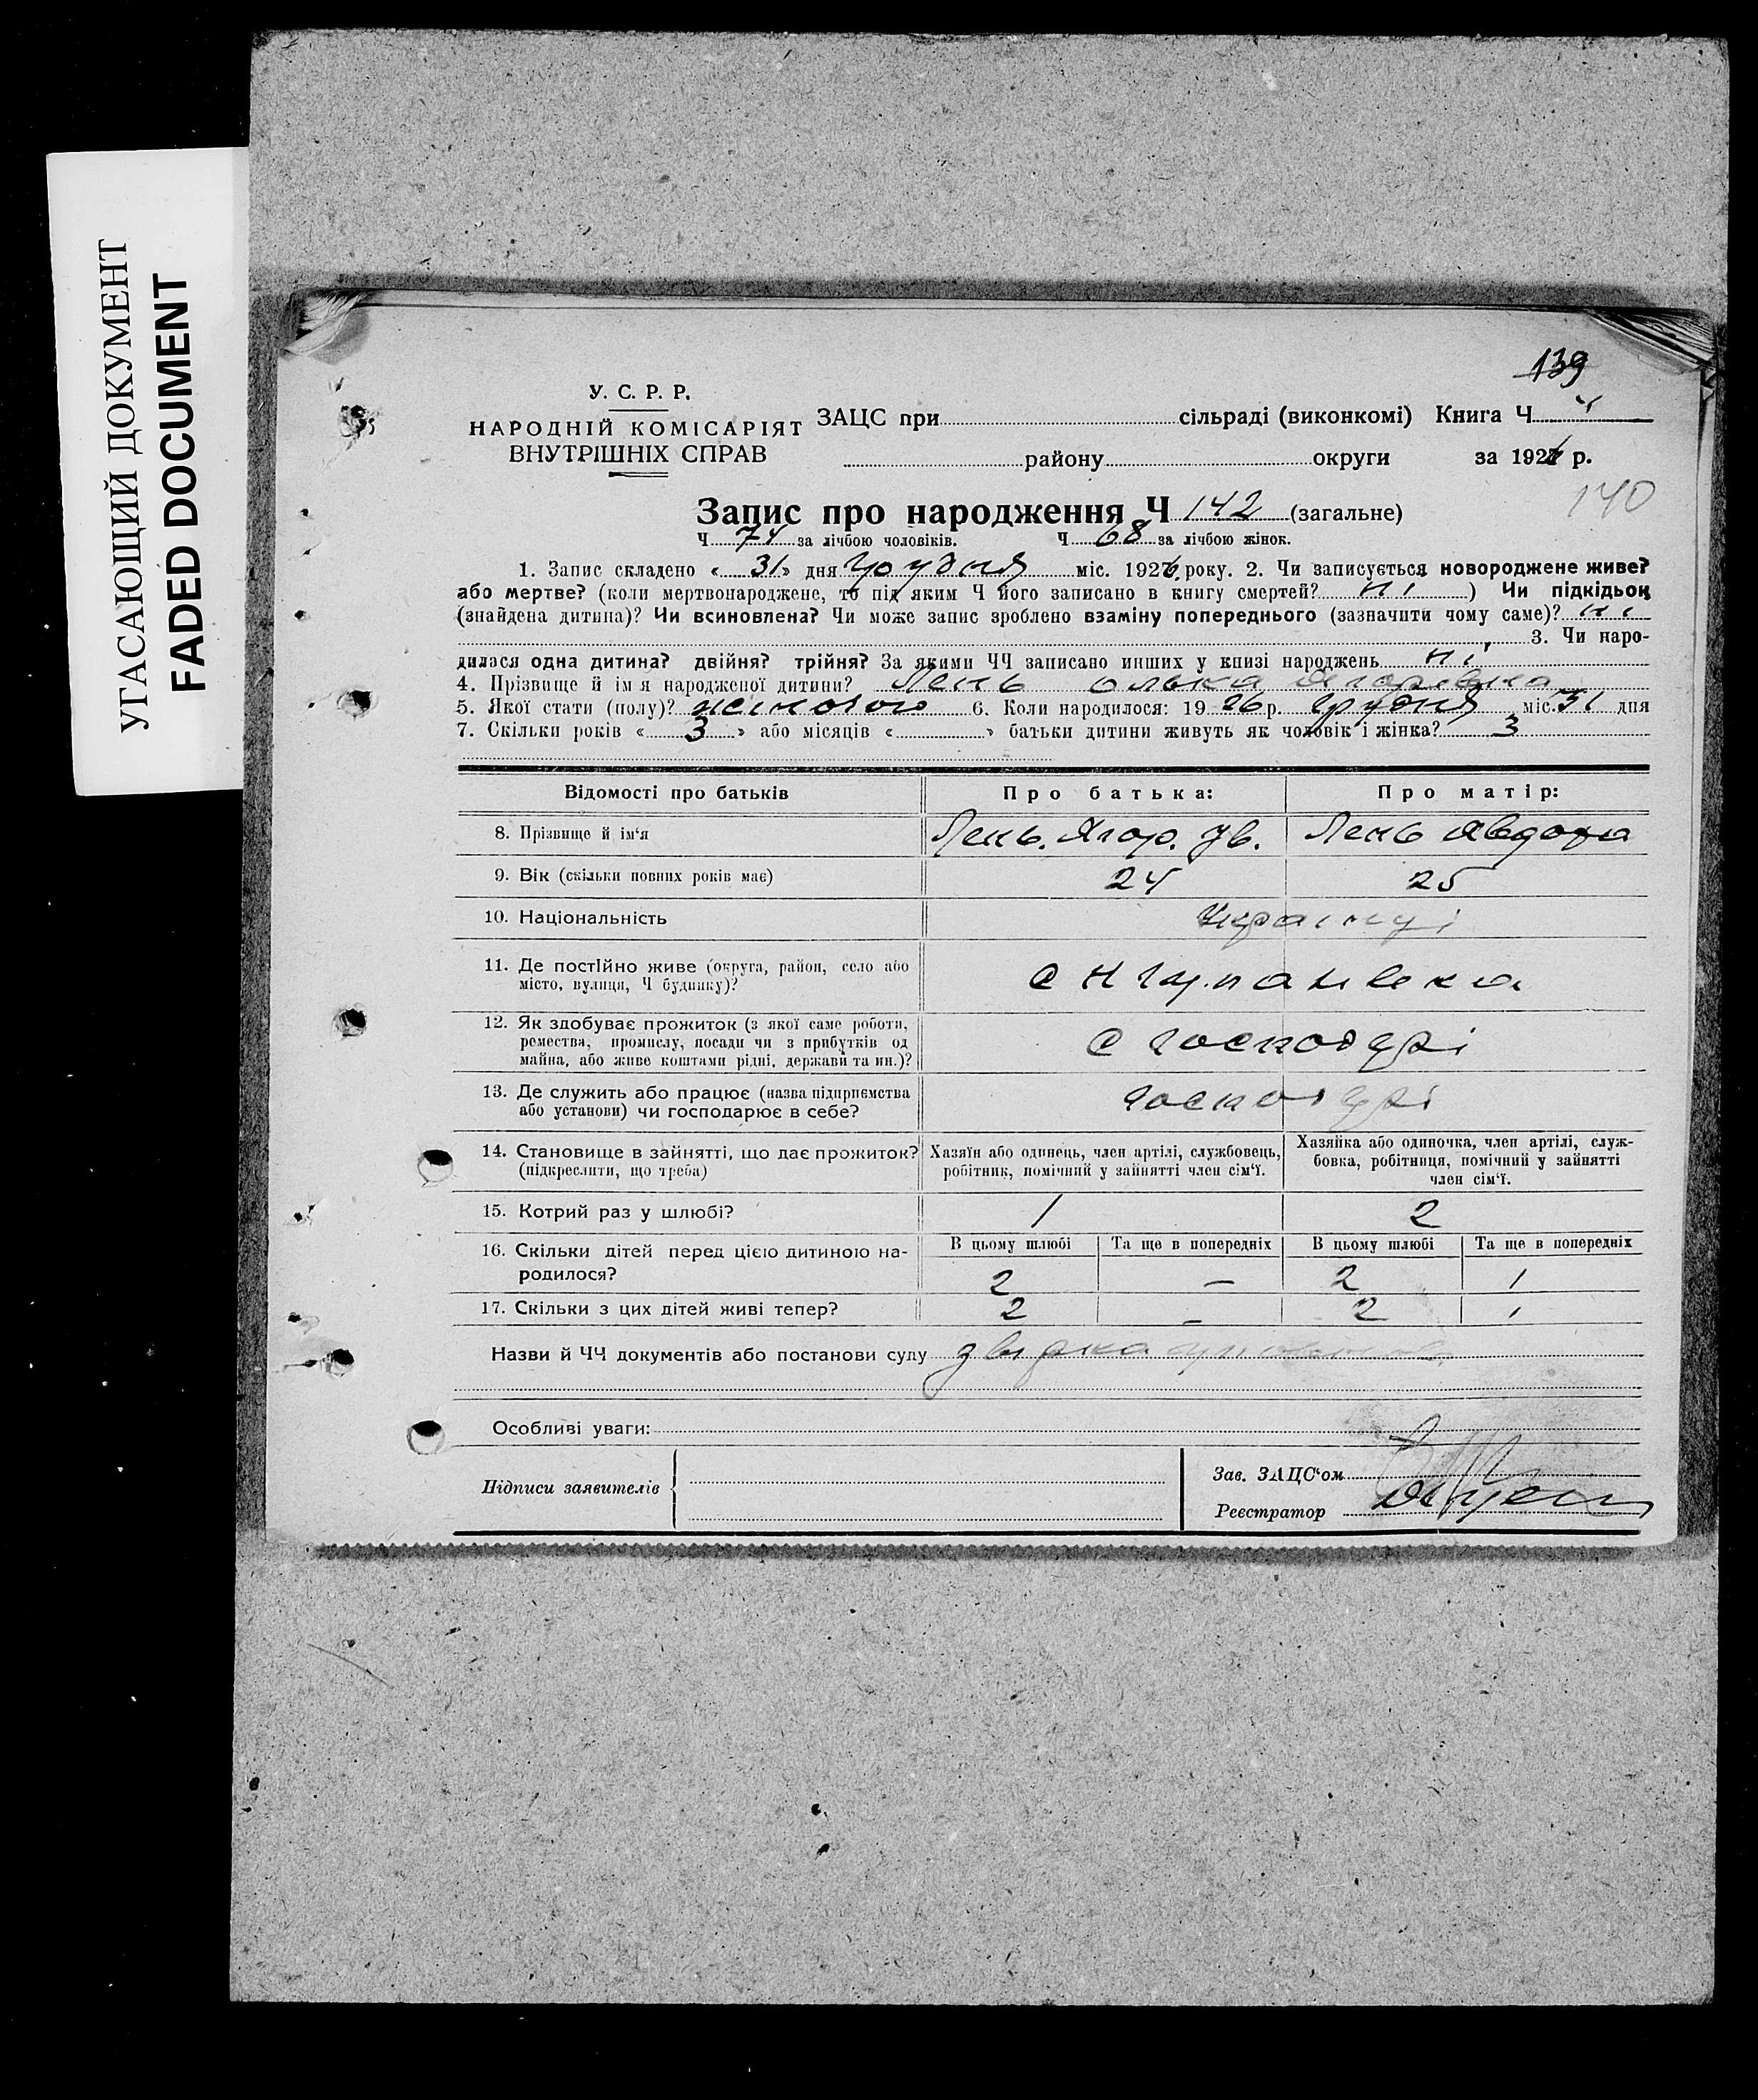 УГАСАЮЩИЙ ДОКУМЕНТ
FADED DOCUMENT
139
У. С. Р. Р.
НАРОДНІЙ КОМІСАРІЯТ
ВНУТРІШНІХ СПРАВ
ЗАЦС при сільраді (виконкомі) Книга Ч
району округи за 1926 р.
140
Запис про народження Ч 142 (загальне)
Ч 74 за лічбою чоловіків. Ч 68 за лічбою жінок.
1. Запис складено « 31 » дня Грудня міс. 1926 року. 2. Чи записується новороджене живе?
або мертве? (коли мертвонароджене, то під яким Ч його записано в книгу смертей? ні ) Чи підкідьок
(знайдена дитина)? Чи всиновлена? Чи може запис зроблено взаміну попереднього (зазначити чому саме)? ні
3. Чи наро-
дилася одна дитина? двійня? трійня? За якими ЧЧ записано инших у книзі народжень ні
4. Прізвище й ім'я народженої дитини? Лень Олька Ягоровна
5. Якої стати (полу)? жіночого 6. Коли народилося: 19 26 р. грудня міс. 31 дня
7. Скільки років « 3 » або місяців « » батьки дитини живуть як чоловік і жінка? 3
Відомості про батьків Про батька: Про матір:
8. Прізвище й ім'я Лень. Ягор. Ів. Лень Явдоха
9. Вік (скільки повних років має) 24 25
10. Національність Українці
11. Де постійно живе (округа, район, село або
місто, вулиця, Ч будинку)? с
12. Як здобуває прожиток (з якої саме роботи,
ремества, промислу, посади чи з прибутків од
майна, або живе коштами рідні, держави та ин.)? с господарі
13. Де служить або працює (назва підприємства
або установи) чи господарює в себе? господарі
14. Становище в зайнятті, що дає прожиток?
(підкреслити, що треба)
Хазяїн або одинець, член артілі, службовець,
робітник, помічний у зайнятті член сім'ї.
Хазяйка або одиночка, член артілі, служ-
бовка, робітниця, помічний у зайнятті
член сім'ї.
15. Котрий раз у шлюбі? 1 2
16. Скільки дітей перед цією дитиною на-
родилося?
В цьому шлюбі Та ще в попередніх В цьому шлюбі Та ще в попередніх
2 — 2 1
17. Скільки з цих дітей живі тепер? 2 - 2 1
Назви й ЧЧ документів або постанови суду
Особливі уваги:
Підписи заявителів
Зав. ЗАЦС'ом
Реєстратор